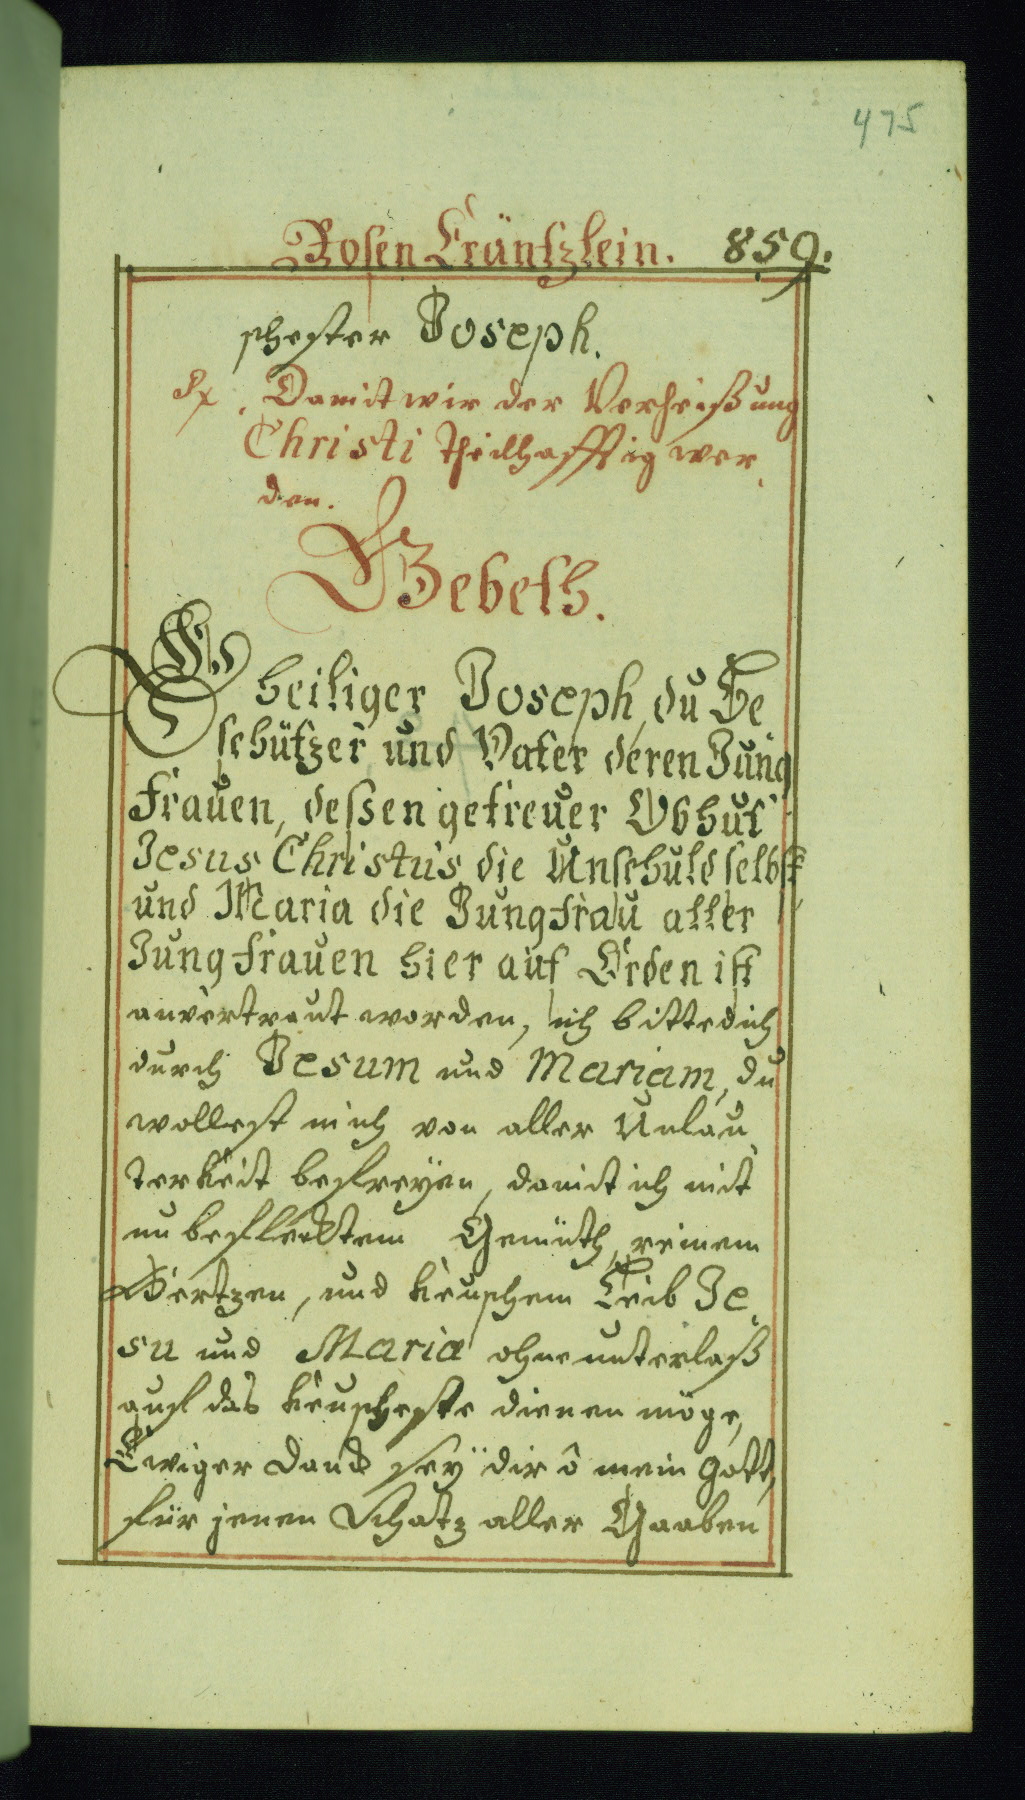 475
Rosen Kräntzlein. 859.
schester Joseph.
℟. Damit wir der Verheißung
Christi theilhafftig wer,
den.
Gebeth.
O heiliger Joseph, du Be
schützer und Vater deren Jung
frauen, deßen getreuer Obhut
Jesus Christus die Unschuld selbst
und Maria die Jungfrau aller
Jungfrauen hier auf Erden ist
anvertraut worden, ich bitte dich
durch Jesum und Mariam, du
wollest mich von aller Unlau,
terkeit befreyen, damit ich mit
unbeflecktem Gemüth, reinem
Hertzen, und keuschem Leib Je,
su und Maria ohne unterlaß
auf das keuscheste dienen möge,
Ewiger Danck seÿ dir ô mein Gott,
für jenen Schatz aller Gaaben